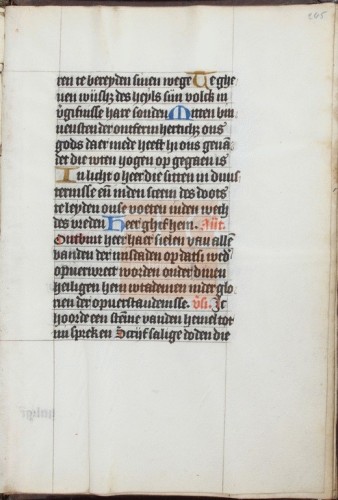 165
ren te bereyden sinen wege Te ghe
uen wijsh; des heyls sijn volck in
v͛gifnisse hare sonden Mitten bin
nensten der ontfermherticĥ ons
gods daer mede heeft hi ons geuā
det die wten hogen op gegaen is
In licht o heer die sitten in duis
ternisse eñ inden sceem des doots
te leyden onse voeten inden wech
des vreden Heer ghif hem. Añt.
Ontbint heer haer sielen van allē
banden der misdaden op datsi wed͛
opuerwect worden onder dinen
heiligen hem v͛bliden in der glo
rien der opuerstandenisse. v͛si. Ic
hoorde een stēme vanden hemel tot
mi spreken Scrijf salige doden die